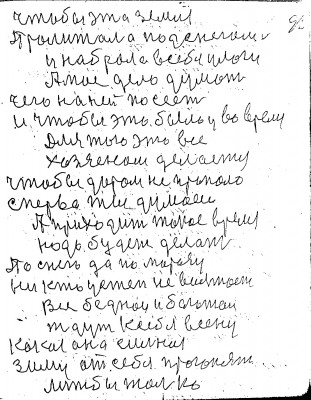 чтобы эта земля
Пролитала под снегом
и набрала в себя влоги
А мое дело думат
чего на ней посеет
и чтобы это было и во время
Для того это все
хозяеном делаетця
чтобы даром не пропало
сперва ты думаеш
А приходит такое время
надо будет делат
По снегу да по морозу
ни кто цепем не
Все бедной и богатой
ждут к себе весну
кака она силная
зиму от себя прогонят
лиш бы толко